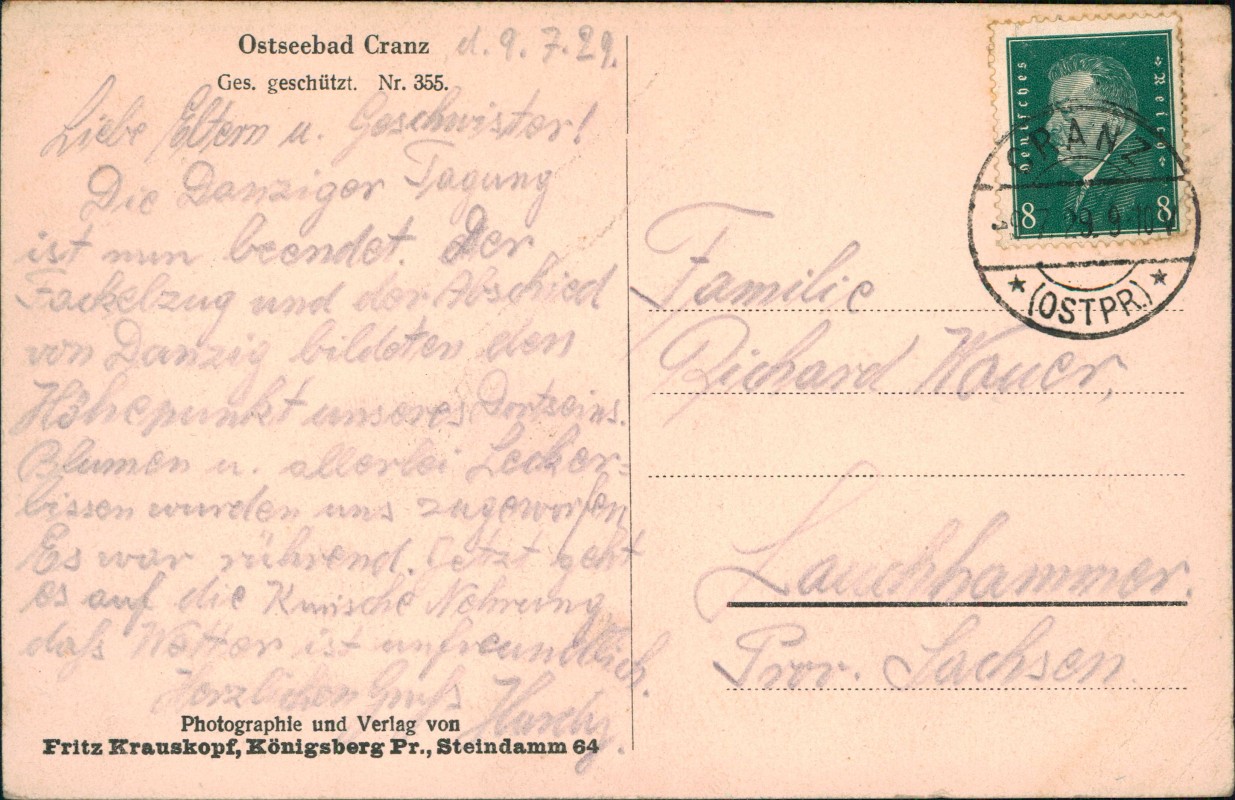 Ostseebad Cranz d. 9. 7. 29.
Ges. geschützt. Nr. 355.
Liebe Eltern u. Geschwister!
Die Danziger Tagung
ist nun beendet. Der
Fackelzug und der Abschied
von Danzig bildeten den
Höhepunkt unseres Dortseins.
Blumen u. allerlei Lecker=
bissen wurden uns zugeworfen
Es war rührend. Jetzt geht
es auf die Kurische Nehrung
daß Wetter ist unfreundlich.
Herzlichen Gruß
Photographie und Verlag von
Fritz Krauskopf, Königsberg Pr., Steindamm 64
Deutsches Reich
8 8
CRANZ
7. 29. 9-10
(OSTPR.)
Familie
Richard Wauer,
Lauchhammer.
Prov. Sachsen